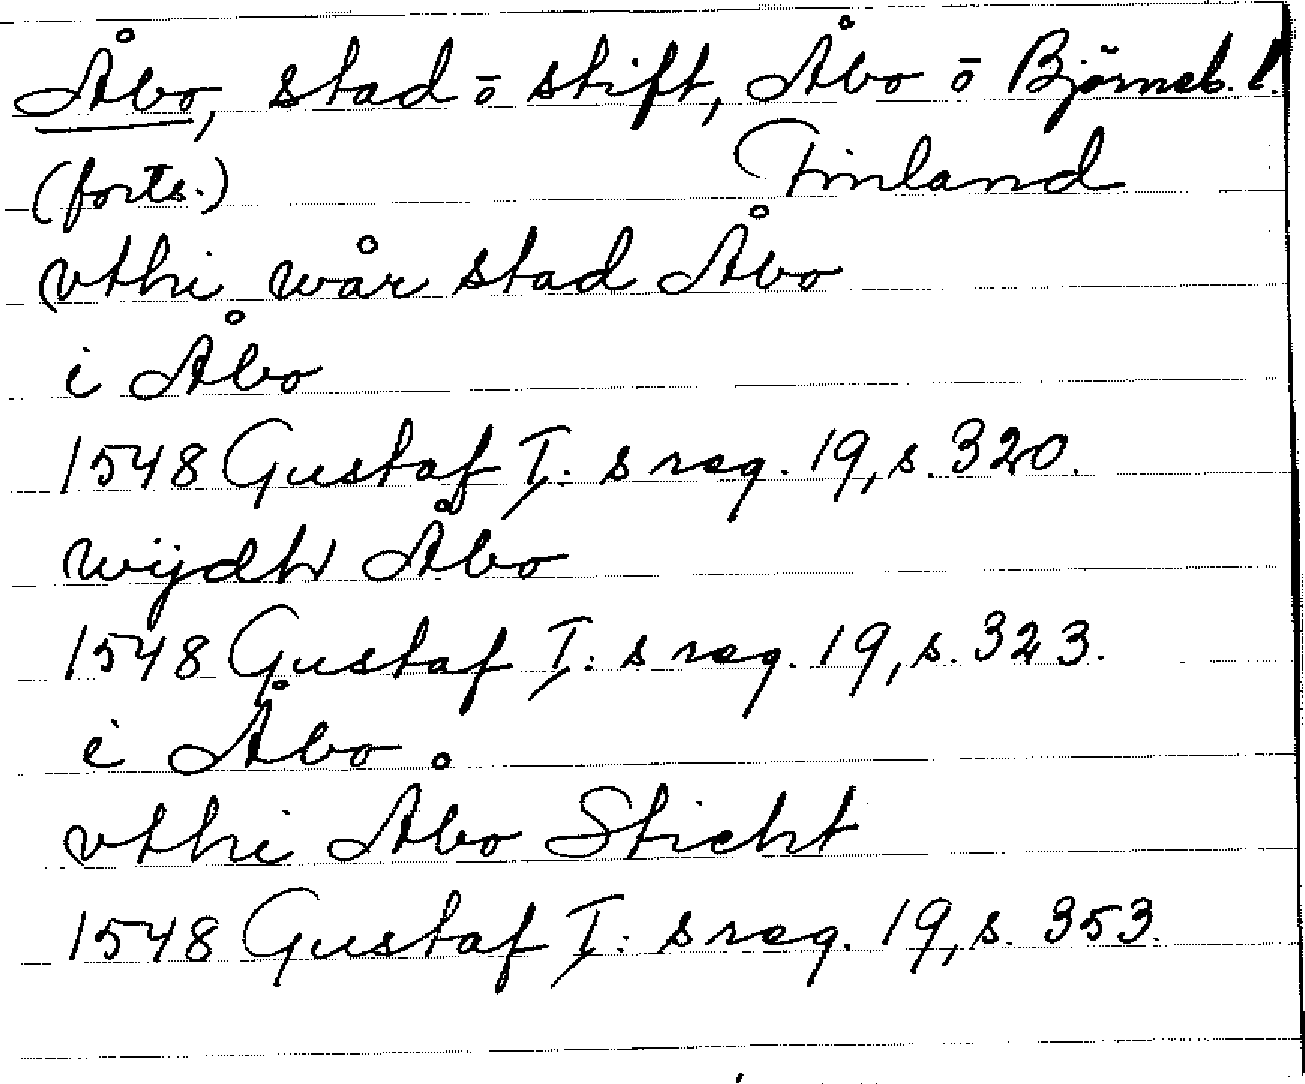 Åbo, stad ō stift, Åbo ō Björneb. l.
(forts.) Finland
vthi wår stad Åbo
i Åbo
1548 Gustaf I:s reg. 19, s. 320.
wijdh Åbo
1548 Gustaf I:s reg. 19, s. 323.
i Åbo
vthi Åbo Sticht
1548 Gustaf I:s reg. 19, s. 353.